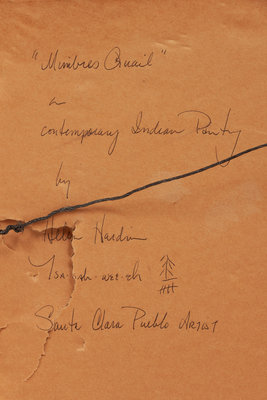 "Mimbres Quail"
a
contemporary Indian Pantg
by
Helen Hardin
Tsa-sah-wee-eh
Santa Clara Pueblo ARTIST